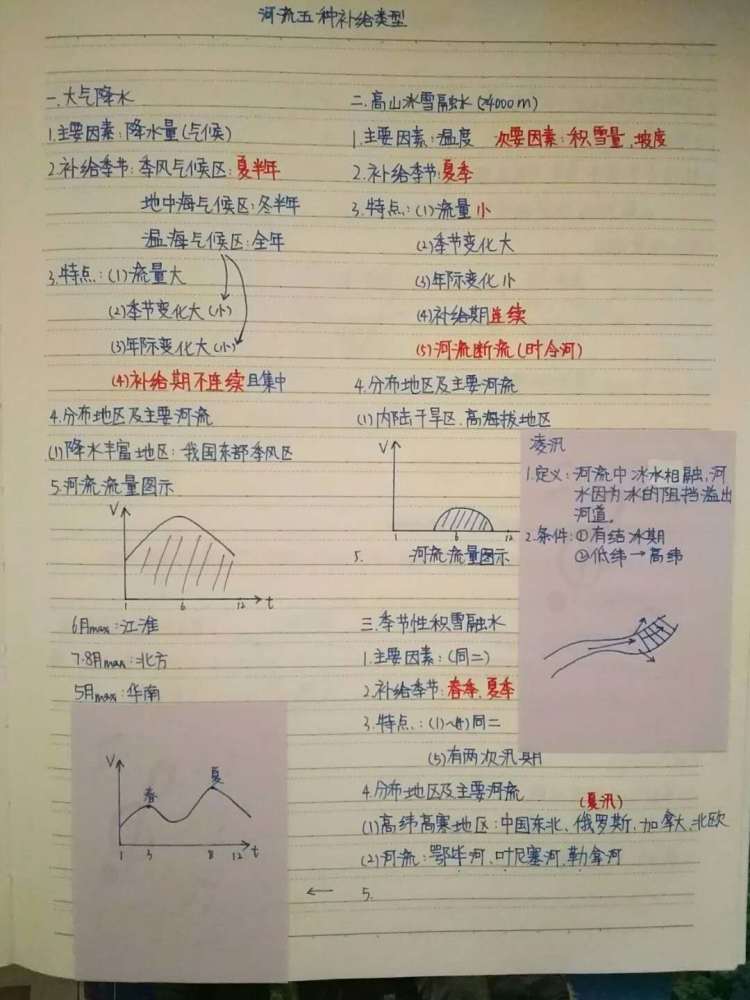 河流五种补给类型
一.大气降水
1.主要因素:降水量(气候)
2.补给季节:季风气候区:夏半年
地中海气候区:冬半年
温海气候区:全年
3.特点:(1)流量大
(2)季节变化大(小)
(3)年际变化大(小)
(4)补给期不连续且集中
4.分布地区及主要河流
(1)降水丰富地区:我国东部季风区
5.河流流量图示
V
1 6 12 t
6月max:江淮
7.8月max:北方
5月max:华南
V
春
夏
1 3 8 12 t
二.高山冰雪融水(≥4000m)
1.主要因素:温度 次要因素:积雪量,坡度
2.补给季节:夏季
3.特点:(1)流量小
(2)季节变化大
(3)年际变化小
(4)补给期连续
(5)河流断流(时令河)
4.分布地区及主要河流
(1)内陆干旱区、高海拔地区
V
1 6 12
5. 河流流量图示
凌汛
1.定义:河流中冰水相融,河
水因为水的阻挡溢出
河道。
2.条件:①有结冰期
②低纬→高纬
三.季节性积雪融水
1.主要因素:(同二)
2.补给季节:春季,夏季
3.特点:(1)~(4)同二
(5)有两次汛期
4.分布地区及主要河流
(夏汛)
(1)高纬高寒地区:中国东北、俄罗斯、加拿大、北欧
(2)河流:鄂毕河、叶尼塞河、勒拿河
← 5.